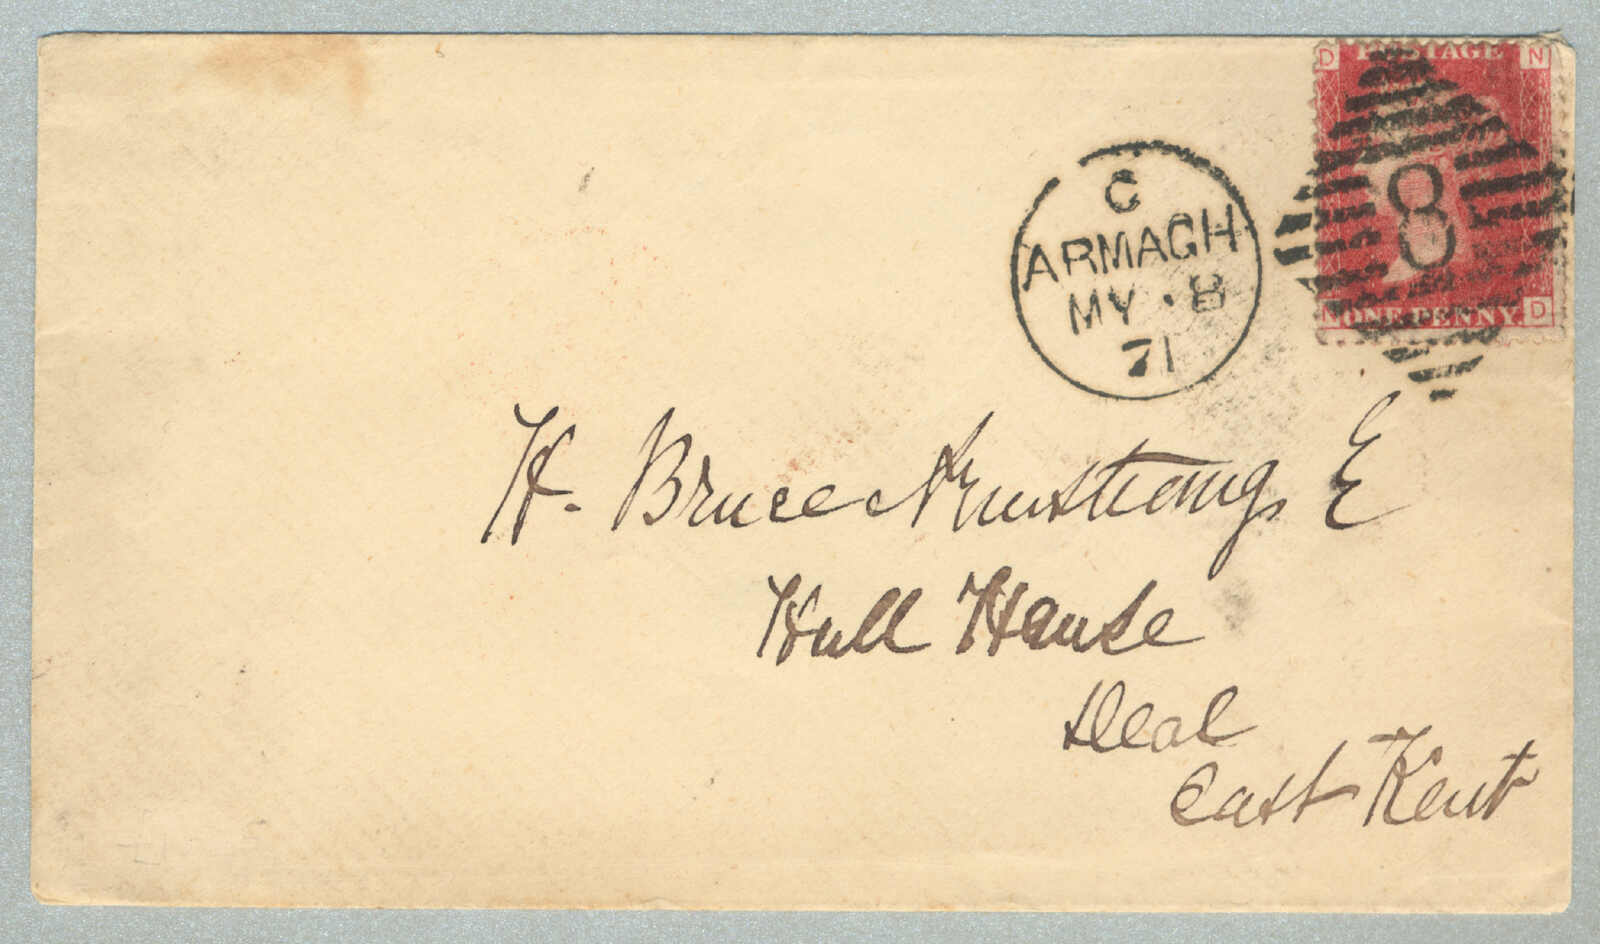 D POSTAGE N
8
N ONE PENNY. D
C
ARMAGH
MY · 8
71
H. Bruce Armstrong E
Hull House
Deal
East Kent